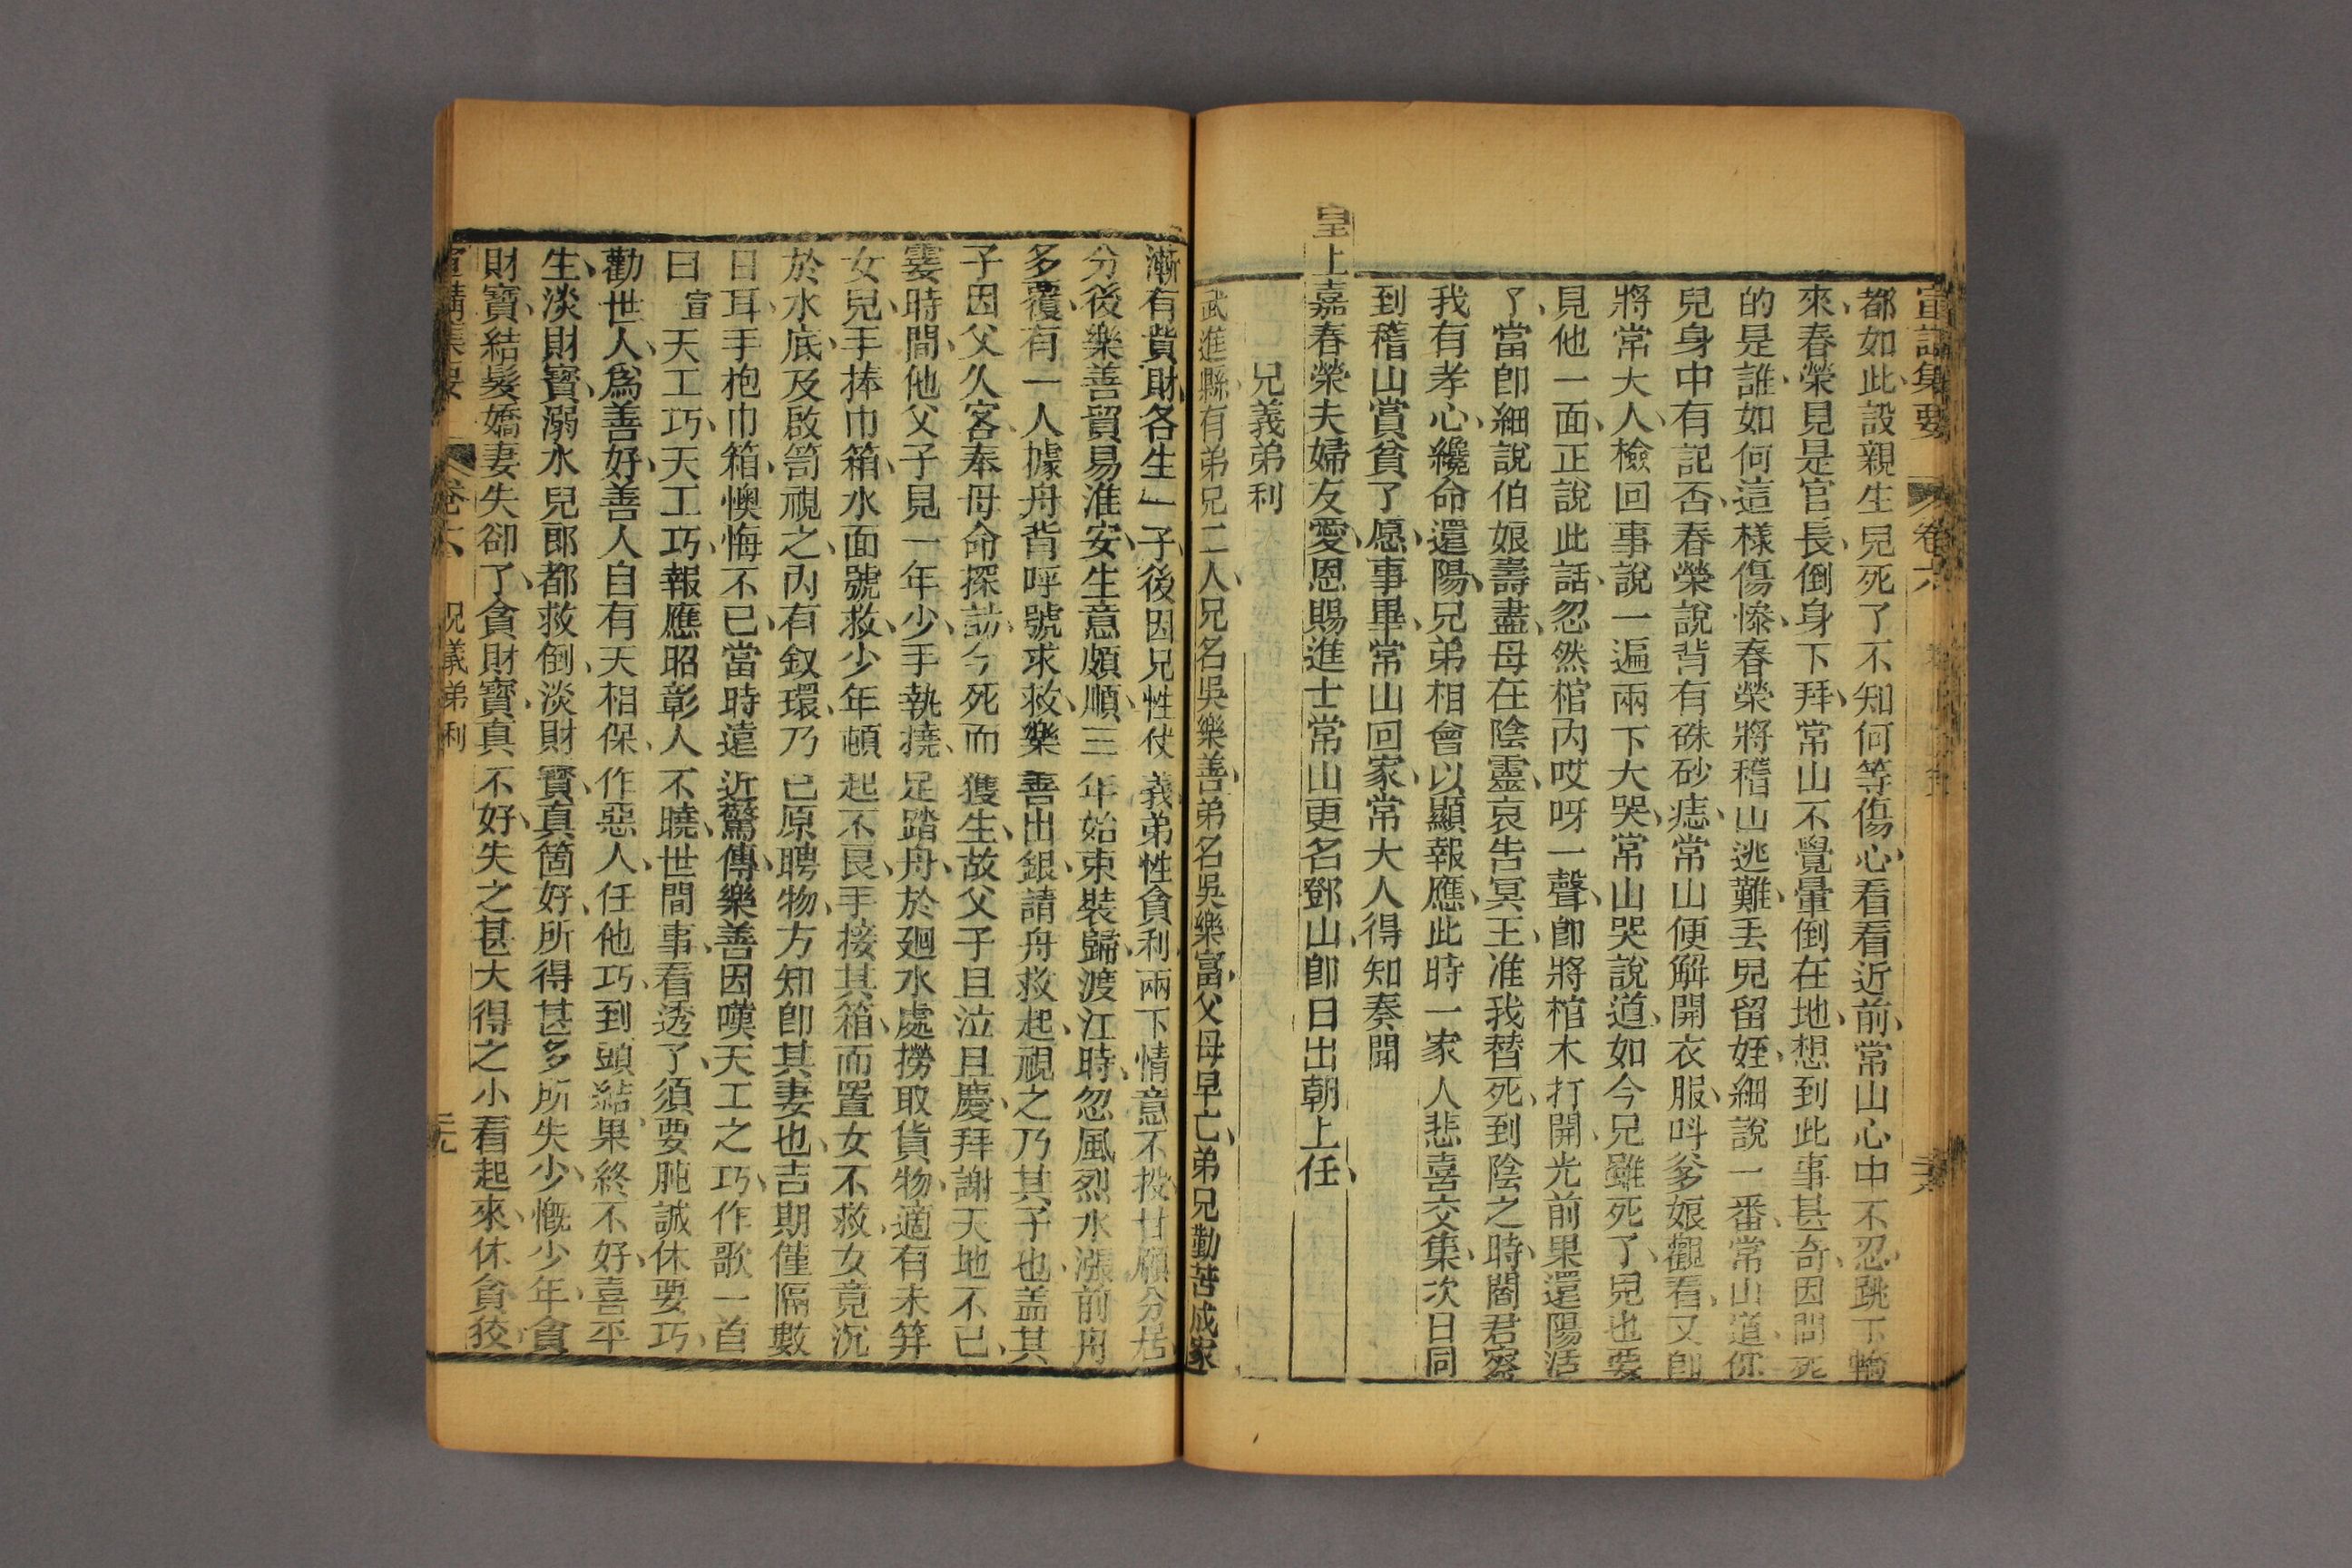 宣講集要 卷六
都如此設親生兒死了不知何等傷心看看近前常山心中不忍跳下轎
來春榮見是官長倒身下拜常山不覺暈倒在地想到此事甚奇因問死
的是誰如何這樣傷慘春榮將稽山逃難丢兒留姪細說一番常山道你
兒身中有記否春榮說背有硃砂痣常山便解開衣服呌爹娘觀看又卽
將常大人檢回事說一遍兩下大哭常山哭說道如今兄雖死了兒也要
見他一面正說此話忽然棺內哎呀一聲卽將棺木打開光前果還陽活
了當卽細說伯娘壽盡母在陰靈哀告冥王准我替死到陰之時閻君察
我有孝心纔命還陽兄弟相會以顯報應此時一家人悲喜交集次日同
到稽山賞貧了愿事畢常山回家常大人得知奏聞
皇上嘉春榮夫婦友愛恩賜進士常山更名鄧山卽日出朝上任
兄義弟利
武進縣有弟兄二人兄名吳樂善弟名吳樂富父母早亡弟兄勤苦成家
漸有貲財各生一子後因兄性仗義弟性貪利兩下情意不投甘願分居
分後樂善貿易淮安生意頗順三年始束裝歸渡江時忽風烈水漲前舟
多覆有一人據舟背呼號求救樂善出銀請舟救起視之乃其子也盖其
子因父久客奉母命探訪今死而獲生故父子且泣且慶拜謝天地不已
霎時間他父子見一年少手執撓足踏舟於廻水處撈取貨物適有未笄
女兒手捧巾箱水面號救少年頓起不良手接其箱而置女不救女竟沉
於水底及啟笥視之內有釵環乃已原聘物方知卽其妻也吉期僅隔數
日耳手抱巾箱懊悔不已當時遠近驚傳樂善因嘆天工之巧作歌一首
曰 宣 天工巧天工巧報應昭彰人不曉世間事看透了須要肫誠休要巧
勸世人爲善好善人自有天相保作惡人任他巧到頭結果終不好喜平
生淡財寳溺水兒郎都救倒淡財寳真箇好所得甚多所失少慨少年貪
財寳結髮嬌妻失卻了貪財寳真不好失之甚大得之小看起來休貪狡
宣講集要 卷六 兄義弟利 元